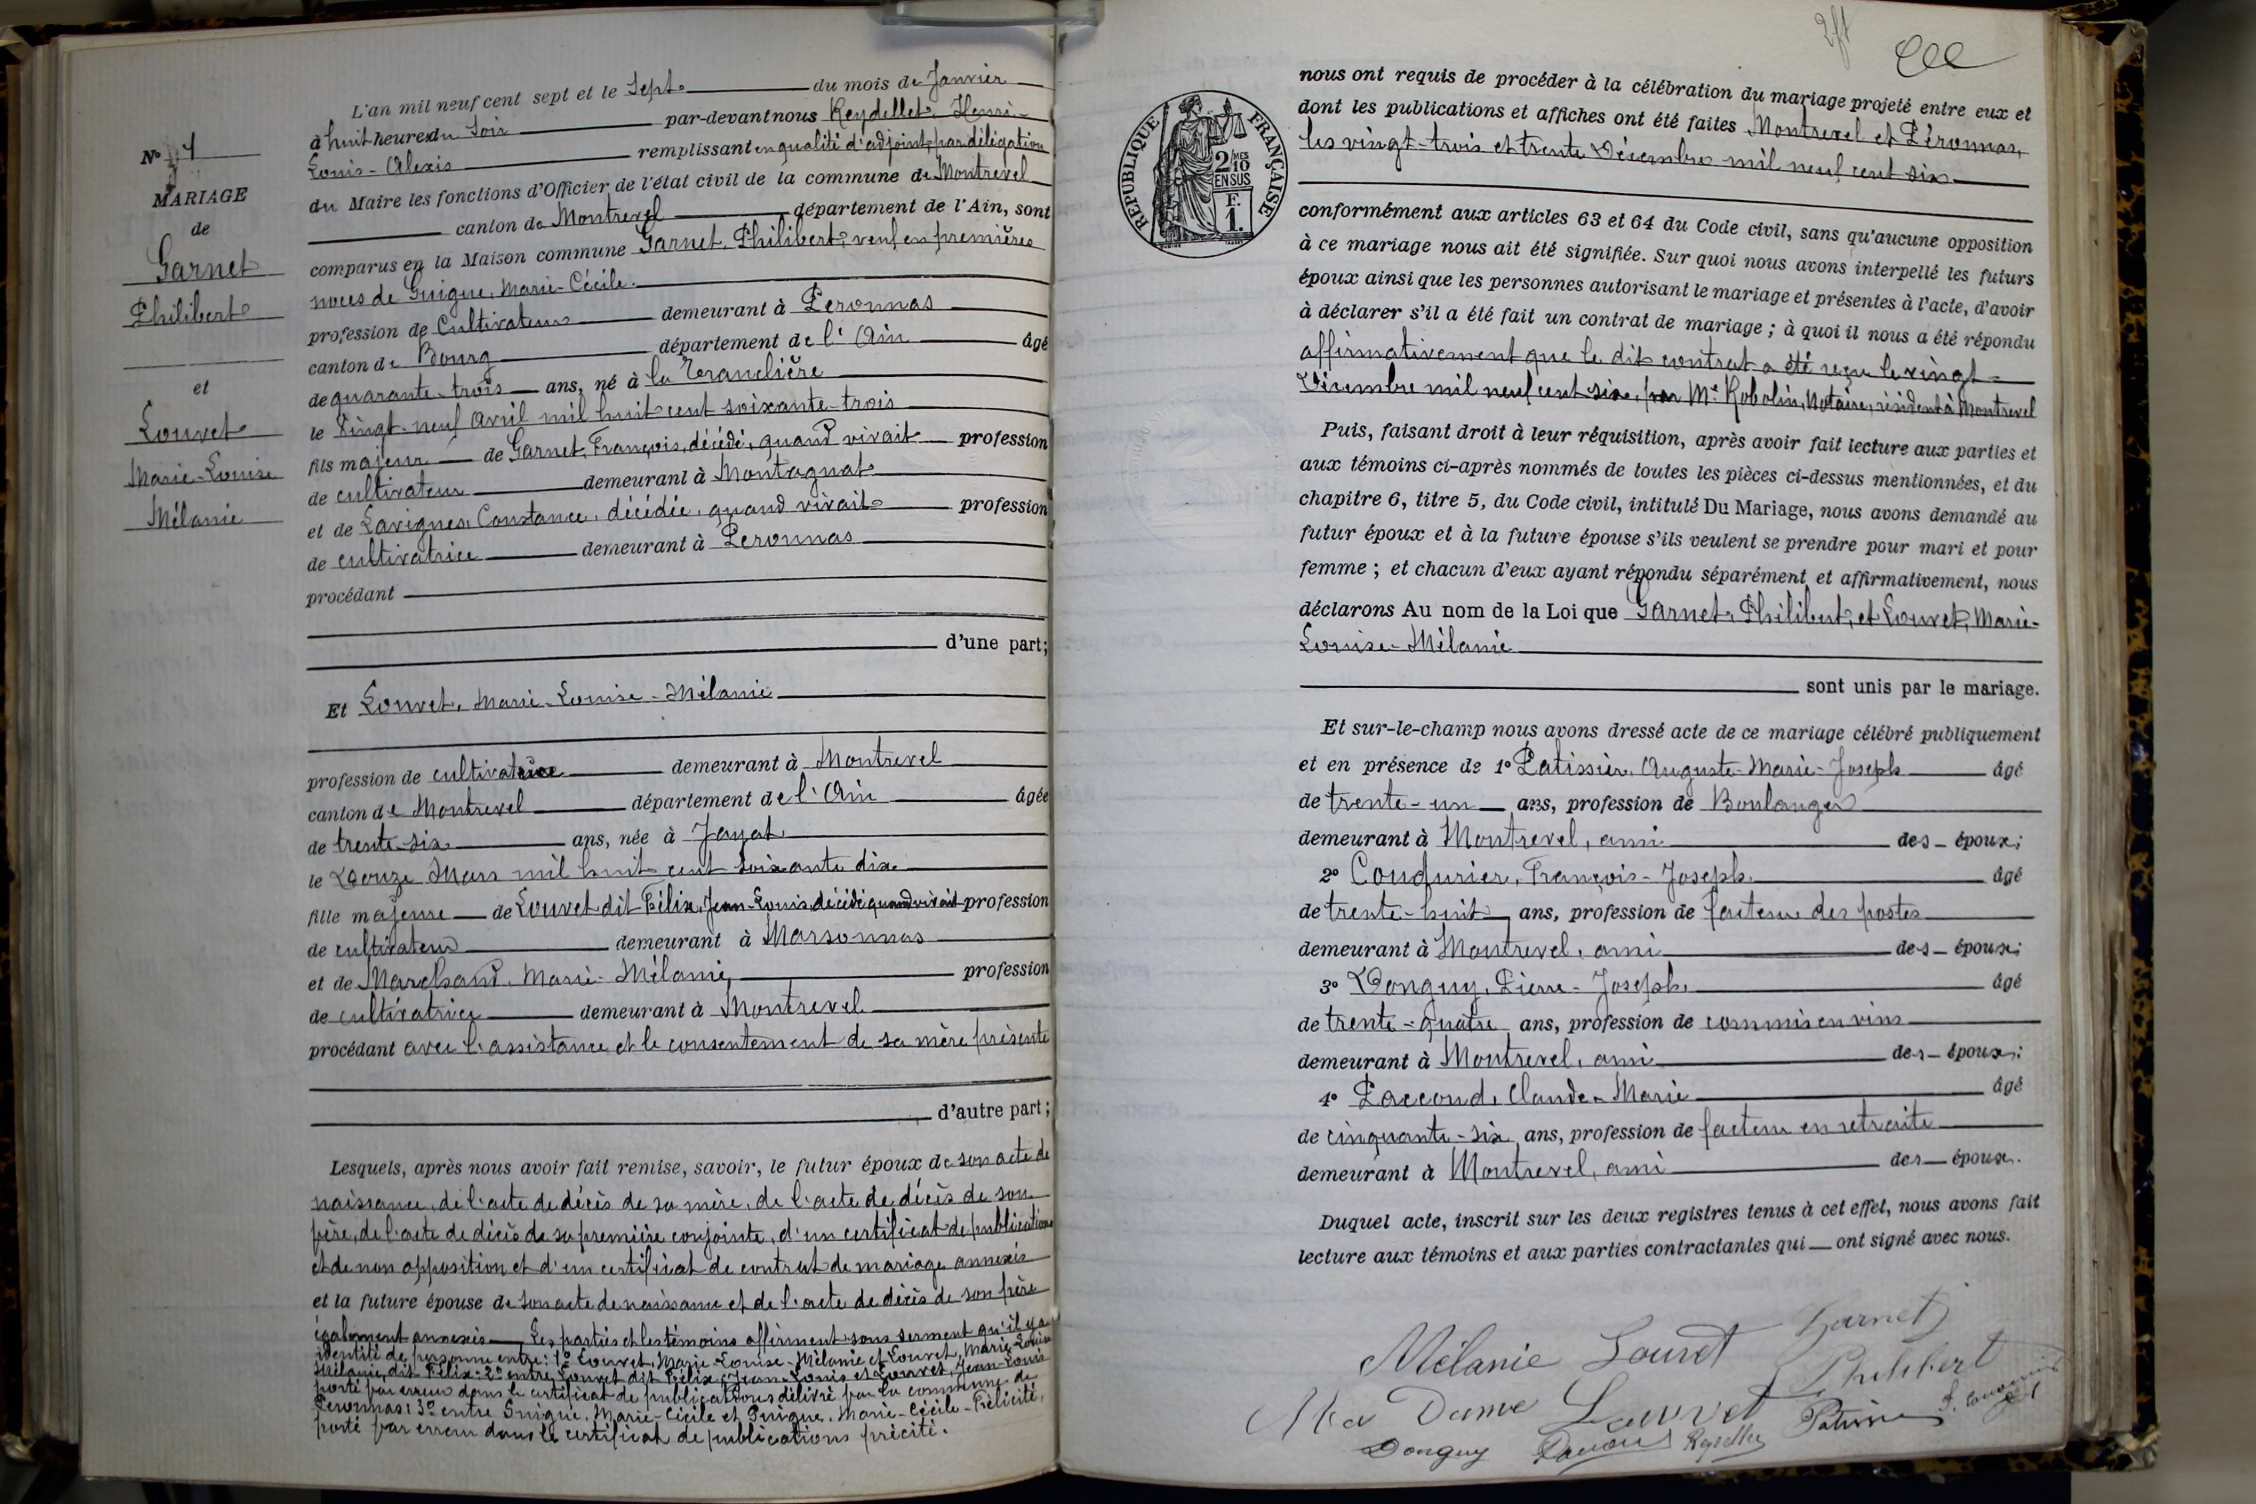 N° 1
MARIAGE
de
Garnet
Philibert
et
Louvet
Marie-Louise
Mélanie
L'an mil neuf cent sept et le Sept du mois de Janvier
à huit heures du Soir par-devant nous Reydellet, Henri-
Louis-Alexis remplissant en qualité d'adjoint par délégation
du Maire les fonctions d'Officier de l'état civil de la commune de Montrevel
canton de Montrevel département de l'Ain, sont
comparus en la Maison commune Garnet, Philibert, veuf en premières
noces de Guigue, Marie-Cécile.
profession de Cultivateur demeurant à Peronnas
canton de Bourg département de l'Ain âgé
de quarante-trois ans, né à la Tranclière
le Vingt-neuf Avril mil huit cent soixante-trois
fils majeur de Garnet, François, décédé, quand vivait profession
de cultivateur demeurant à Montagnat
et de Lavignes, Constance, décédée, quand vivait profession
de cultivatrice demeurant à Peronnas
procédant
d'une part;
Et Louvet, Marie-Louise-Mélanie
profession de cultivatrice demeurant à Montrevel
canton de Montrevel département de l'Ain âgée
de trente-six ans, née à Jayat
le Douze Mars mil huit cent soixante dix
fille majeure de Louvet dit Félix, Jean-Louis, décédé quand vivait profession
de cultivateur demeurant à Marsonnas
et de Marchand, Marie-Mélanie, profession
de cultivatrice demeurant à Montrevel
procédant avec l'assistance et le consentement de sa mère présente
d'autre part;
Lesquels, après nous avoir fait remise, savoir, le futur époux de son acte de
naissance, de l'acte de décès de sa mère, de l'acte de décès de son
père, de l'acte de décès de sa première conjointe, d'un certificat de publications
et de non opposition et d'un certificat de contrat de mariage annexés
et la future épouse de son acte de naissance et de l'acte de décès de son père
également annexés Les parties et les témoins affirment sous serment qu'il y a
identité de personne entre: 1° Louvet, Marie-Louise-Mélanie et Louvet, Marie-Louise
Mélanie, dit Félix-2° entre Louvet dit Félix, Jean-Louis et Louvet, Jean-Louis
porté par erreur dans le certificat de publications délivré par la commune de
Peronnas: 3° entre Guigue, Marie-Cécile et Guigue, Marie-Cécile-Félicité,
porté par erreur dans le certificat de publications précité.
RÉPUBLIQUE FRANÇAISE
2/MES
10
EN SUS
F.
1.
nous ont requis de procéder à la célébration du mariage projeté entre eux et
dont les publications et affiches ont été faites Montrevel et Péronnas,
les vingt-trois et trente Décembre mil neuf cent six
conformément aux articles 63 et 64 du Code civil, sans qu'aucune opposition
à ce mariage nous ait été signifiée. Sur quoi nous avons interpellé les futurs
époux ainsi que les personnes autorisant le mariage et présentes à l'acte, d'avoir
à déclarer s'il a été fait un contrat de mariage; à quoi il nous a été répondu
affirmativement que le dit contrat a été reçu le vingt-
Décembre mil neuf cent six, par Me Robolin, Notaire, résident à Montrevel
Puis, faisant droit à leur réquisition, après avoir fait lecture aux parties et
aux témoins ci-après nommés de toutes les pièces ci-dessus mentionnées, et du
chapitre 6, titre 5, du Code civil, intitulé Du Mariage, nous avons demandé au
futur époux et à la future épouse s'ils veulent se prendre pour mari et pour
femme; et chacun d'eux ayant répondu séparément et affirmativement, nous
déclarons Au nom de la Loi que Garnet, Philibert, et Louvet, Marie-
Louise-Mélanie
sont unis par le mariage.
Et sur-le-champ nous avons dressé acte de ce mariage célébré publiquement
et en présence de 1° Patissier, Auguste-Marie-Joseph âgé
de trente-un ans, profession de Boulanger
demeurant à Montrevel, ami des époux;
2° Coudurier, François-Joseph âgé
de trente-huit ans, profession de facteur des postes
demeurant à Montrevel, ami des époux;
3° Donguy, Pierre-Joseph, âgé
de trente-quatre ans, profession de commis en vins
demeurant à Montrevel, ami des époux;
4° Paccoud, Claude-Marie âgé
de cinquante-six ans, profession de facteur en retraite
demeurant à Montrevel, ami des époux.
Duquel acte, inscrit sur les deux registres tenus à cet effet, nous avons fait
lecture aux témoins et aux parties contractantes qui ont signé avec nous.
Mélanie Louvet Garnet
Philibert
Dame Louvet
Donguy